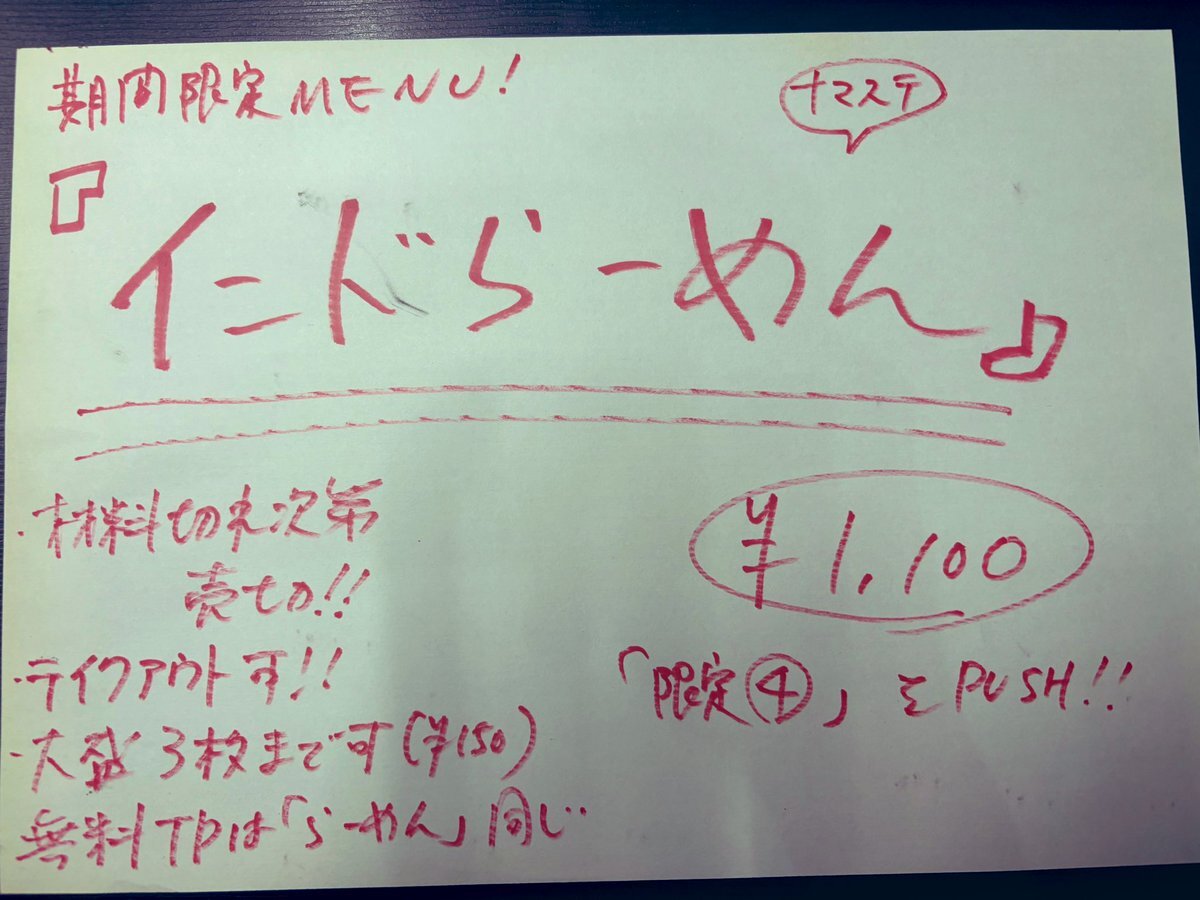 期間限定MENU!
ナマステ
『インドらーめん』
・材料切れ次第
売切!!
¥1,100
・テイクアウト可!!
「限定④」をPUSH!!
・大盛3枚まで可(¥150)
無料TPは「らーめん」同じ